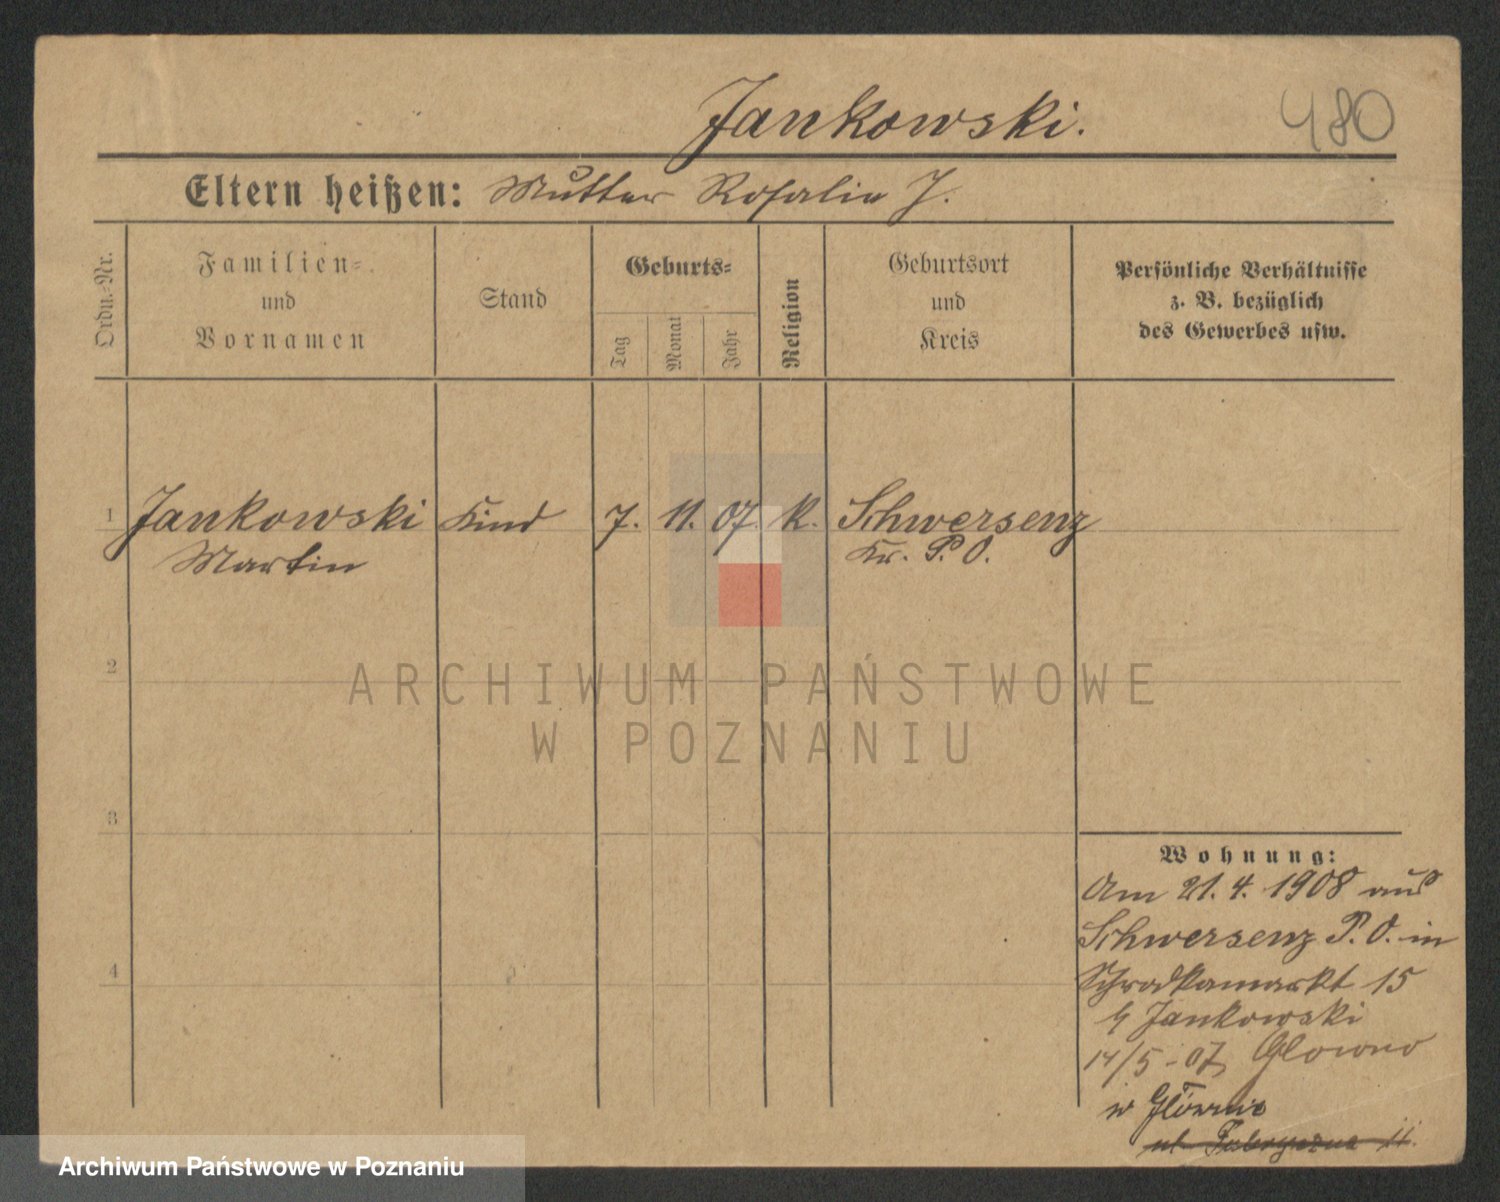 Jankowski.
480
Eltern heißen: Mutter Rosalie J.
Ordn.-Nr.
Familien-
und
Vornamen
Stand
Geburts-
Tag
Monat
Jahr
Religion
Geburtsort
und
Kreis
Persönliche Verhältnisse
z. B. bezüglich
des Gewerbes usw.
1 Jankowski Kind 7. 11. 07. K. Schwersenz
Martin Kr. P. O.
2
3
4
Wohnung:
Am 21. 4. 1908 aus
Schwersenz P. O. in
Schrodkamarkt 15
b/ Jankowski
14/5 - 07, Glowno
w Głównie
ul. Fabryczna 11.
ARCHIWUM PAŃSTWOWE
W POZNANIU
Archiwum Państwowe w Poznaniu